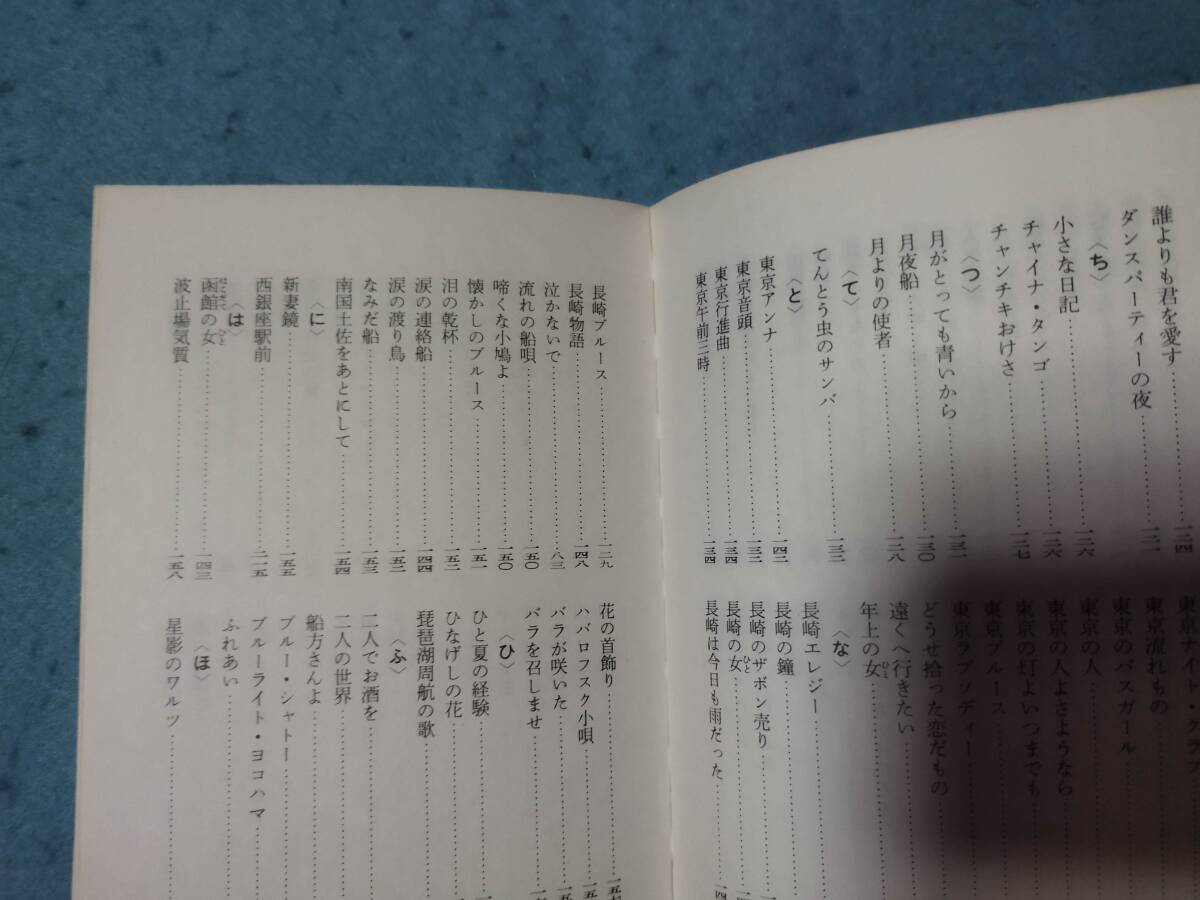 誰よりも君を愛す……一二四
ダンスパーティーの夜……一二一
〈ち〉
小さな日記……一二六
チャイナ・タンゴ……一二六
チャンチキおけさ……一二七
〈つ〉
月がとっても青いから……一三一
月夜船……一三〇
月よりの使者……一二八
〈て〉
てんとう虫のサンバ……一三二
〈と〉
東京アンナ……一四二
東京音頭……一三三
東京行進曲……一三四
東京午前三時……一三四
東京流れもの
東京のバスガール
東京の人
東京の人よさようなら
東京の灯よいつまでも
東京ブルース
東京ラプソディー
どうせ拾った恋だもの
遠くへ行きたい
年上の女
ひと
〈な〉
長崎エレジー
長崎の鐘
長崎のザボン売り
長崎の女
ひと
長崎は今日も雨だった
長崎ブルース……一二九
長崎物語……一四八
泣かないで……八三
流れの船唄……一五〇
啼くな小鳩よ……一五〇
懐かしのブルース……一五一
泪の乾杯……一五二
涙の連絡船……一四四
涙の渡り鳥……一五二
なみだ船……一五三
南国土佐をあとにして……一五四
〈に〉
新妻鏡……一五五
西銀座駅前……二一五
〈は〉
函館の女……一四三
はこだて ひと
波止場気質……一五八
花の首飾り
ハバロフスク小唄
バラが咲いた
バラを召しませ
〈ひ〉
ひと夏の経験
ひなげしの花
琵琶湖周航の歌
〈ふ〉
二人でお酒を
二人の世界
船方さんよ
ブルー・シャトー
ブルーライト・ヨコハマ
ふれあい
〈ほ〉
星影のワルツ